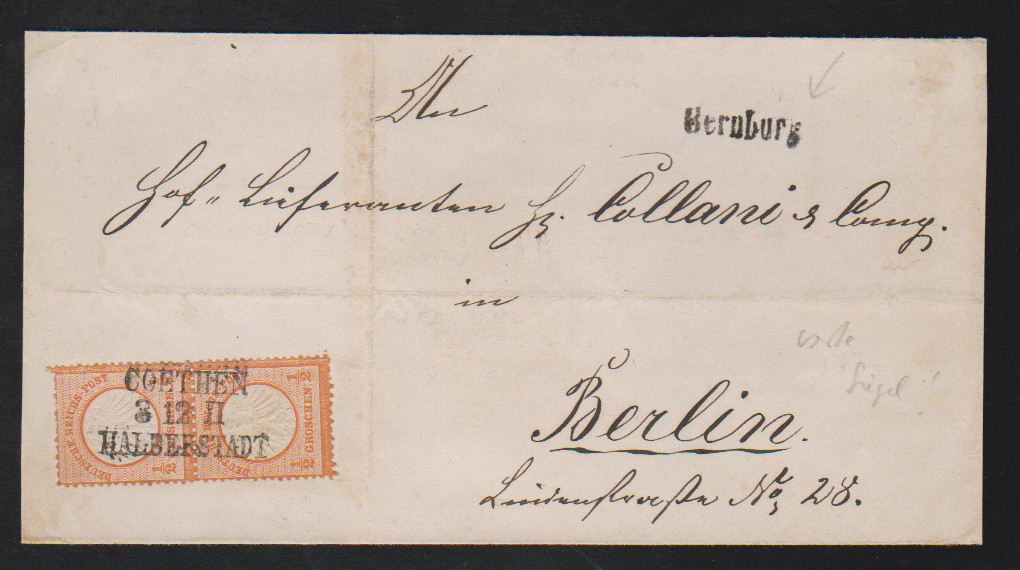 An
Bernburg
Hof-Lieferanten H. Collani & Comp.
in
Berlin.
Lindenstraße No. 28.
COETHEN
3 12 II
HALBERSTADT
DEUTSCHE REICHS-POST
1/2 GROSCHEN 1/2
1/2